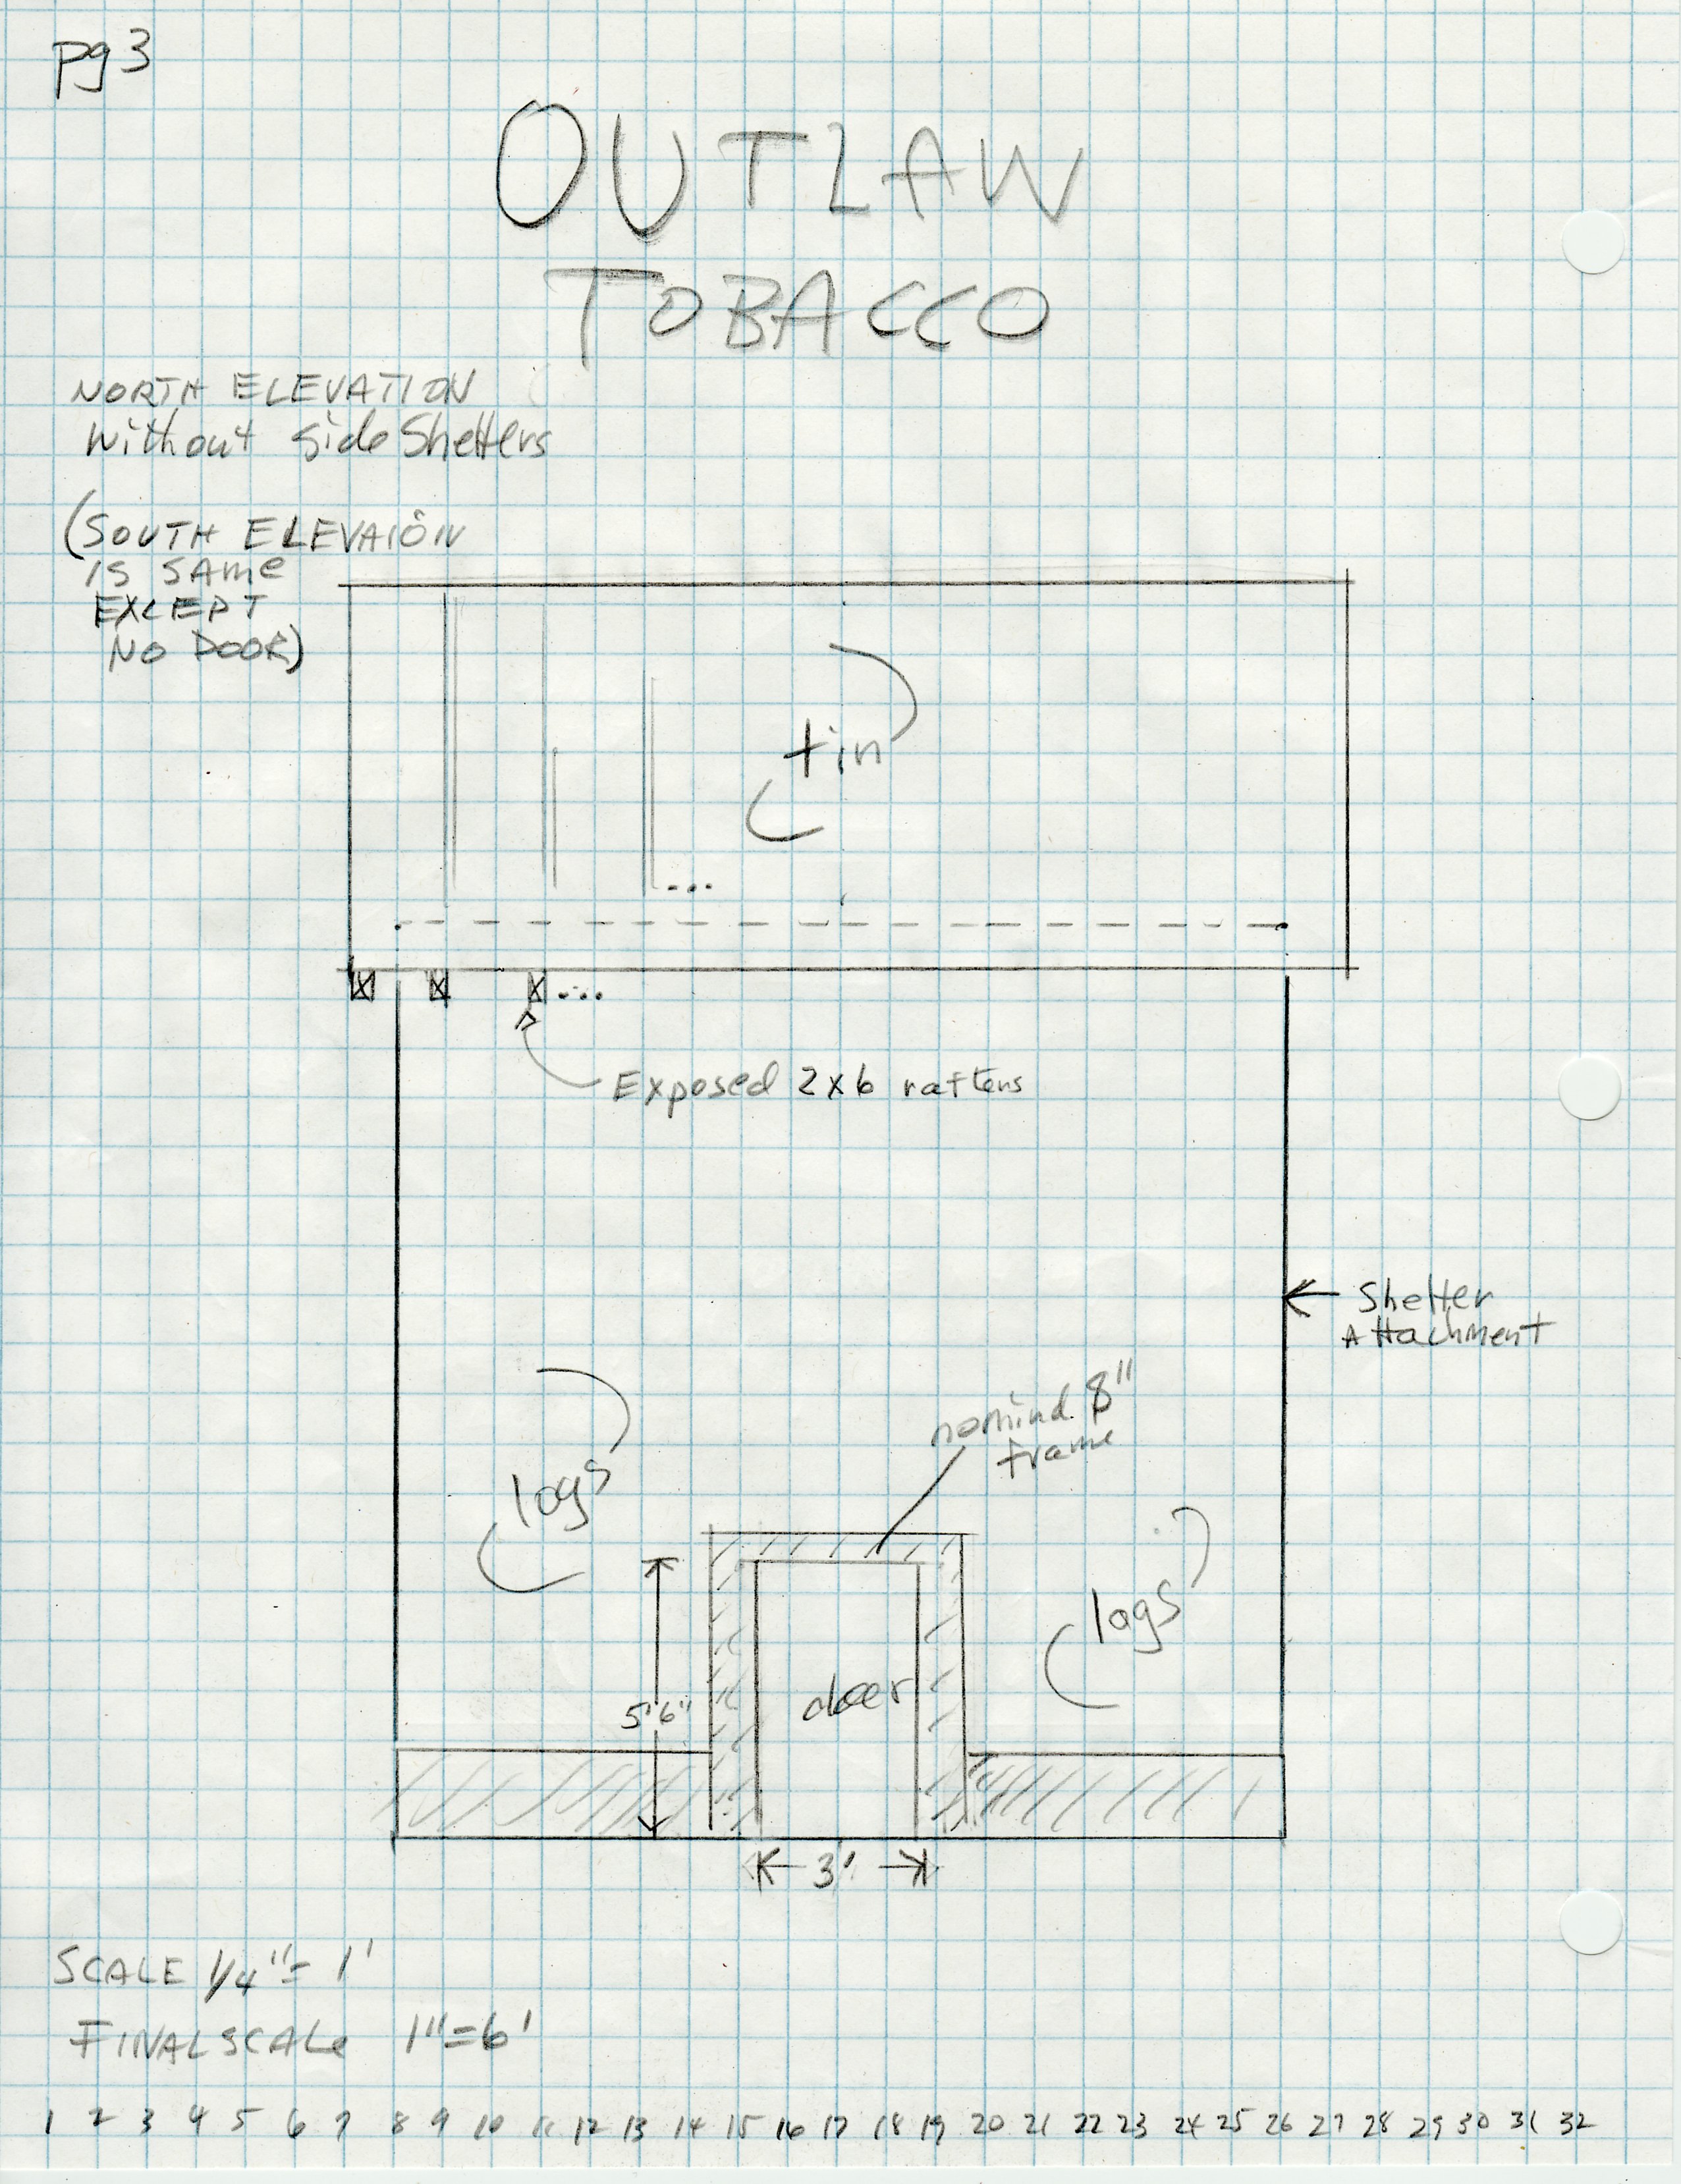 pg 3
OUTLAW
TOBACCO
NORTH ELEVATION
without side Shelters
(SOUTH ELEVAIÖN
IS SAME
EXCEPT
NO DOOR)
tin
...
...
Exposed 2x6 rafters
Shelter
Attachment
nominal 8"
frame
logs
logs
5'6"
door
3'
SCALE 1/4" = 1'
FINAL SCALE 1"=6'
1 2 3 4 5 6 7 8 9 10 11 12 13 14 15 16 17 18 19 20 21 22 23 24 25 26 27 28 29 30 31 32